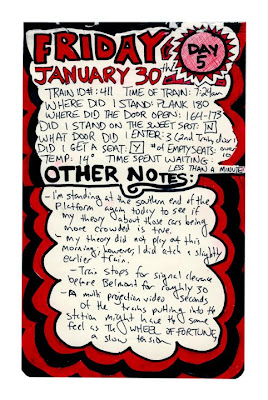 FRIDAY,
DAY 5
JANUARY 30th
TRAIN ID#: 411 TIME OF TRAIN: 7:29am
WHERE DID I STAND: PLANK 180
WHERE DID THE DOOR OPEN: 164-173
DID I STAND ON THE SWEET SPOT: N
WHAT DOOR DID I ENTER: 3 (2nd Train, door 1)
DID I GET A SEAT: Y # OF EMPTY SEATS: over 10
TEMP: 14° TIME SPENT WAITING:
LESS THAN A MINUTE!
OTHER NOTES:
- I'm standing at the southern end of the
platform again today to see if
my theory about those cars being
more crowded is true.
- My theory did not play out this
morning, however, I did catch a slightly
earlier train.
- Train stops for signal clearance
before Belmont for roughly 30
seconds
- A multi projection video
of the trains pulling into the
station might have the same
feel as the WHEEL OF FORTUNE,
a slow tension